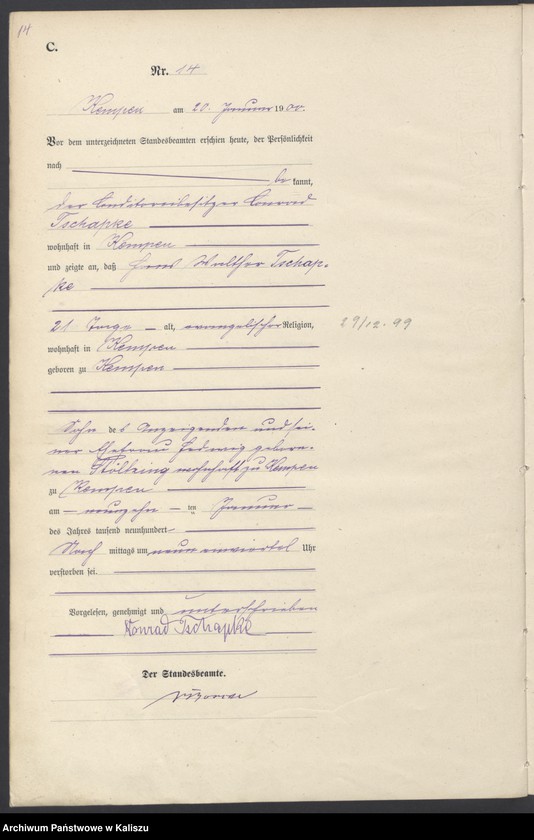 14
C.
Nr. 14
Kempen am 20. Januar 1900.
Vor dem unterzeichneten Standesbeamten erschien heute, der Persönlichkeit
nach
bekannt,
der Conditoreibesitzer Conrad
Tschapke
wohnhaft in Kempen
und zeigte an, daß Hans Walther Tschap-
ke
21 Tage alt, evangelischer Religion,
29/12. 99
wohnhaft in Kempen
geboren zu Kempen
Sohn des Anzeigenden und sei-
ner Ehefrau Hedwig gebore-
nen wohnhaft zu Kempen
zu Kempen
am neunzehn ten Januar
des Jahres tausend neunhundert
Nach mittags um neun Uhr
verstorben sei.
Vorgelesen, genehmigt und unterschrieben
Konrad Tschapke
Der Standesbeamte.
Archiwum Państwowe w Kaliszu